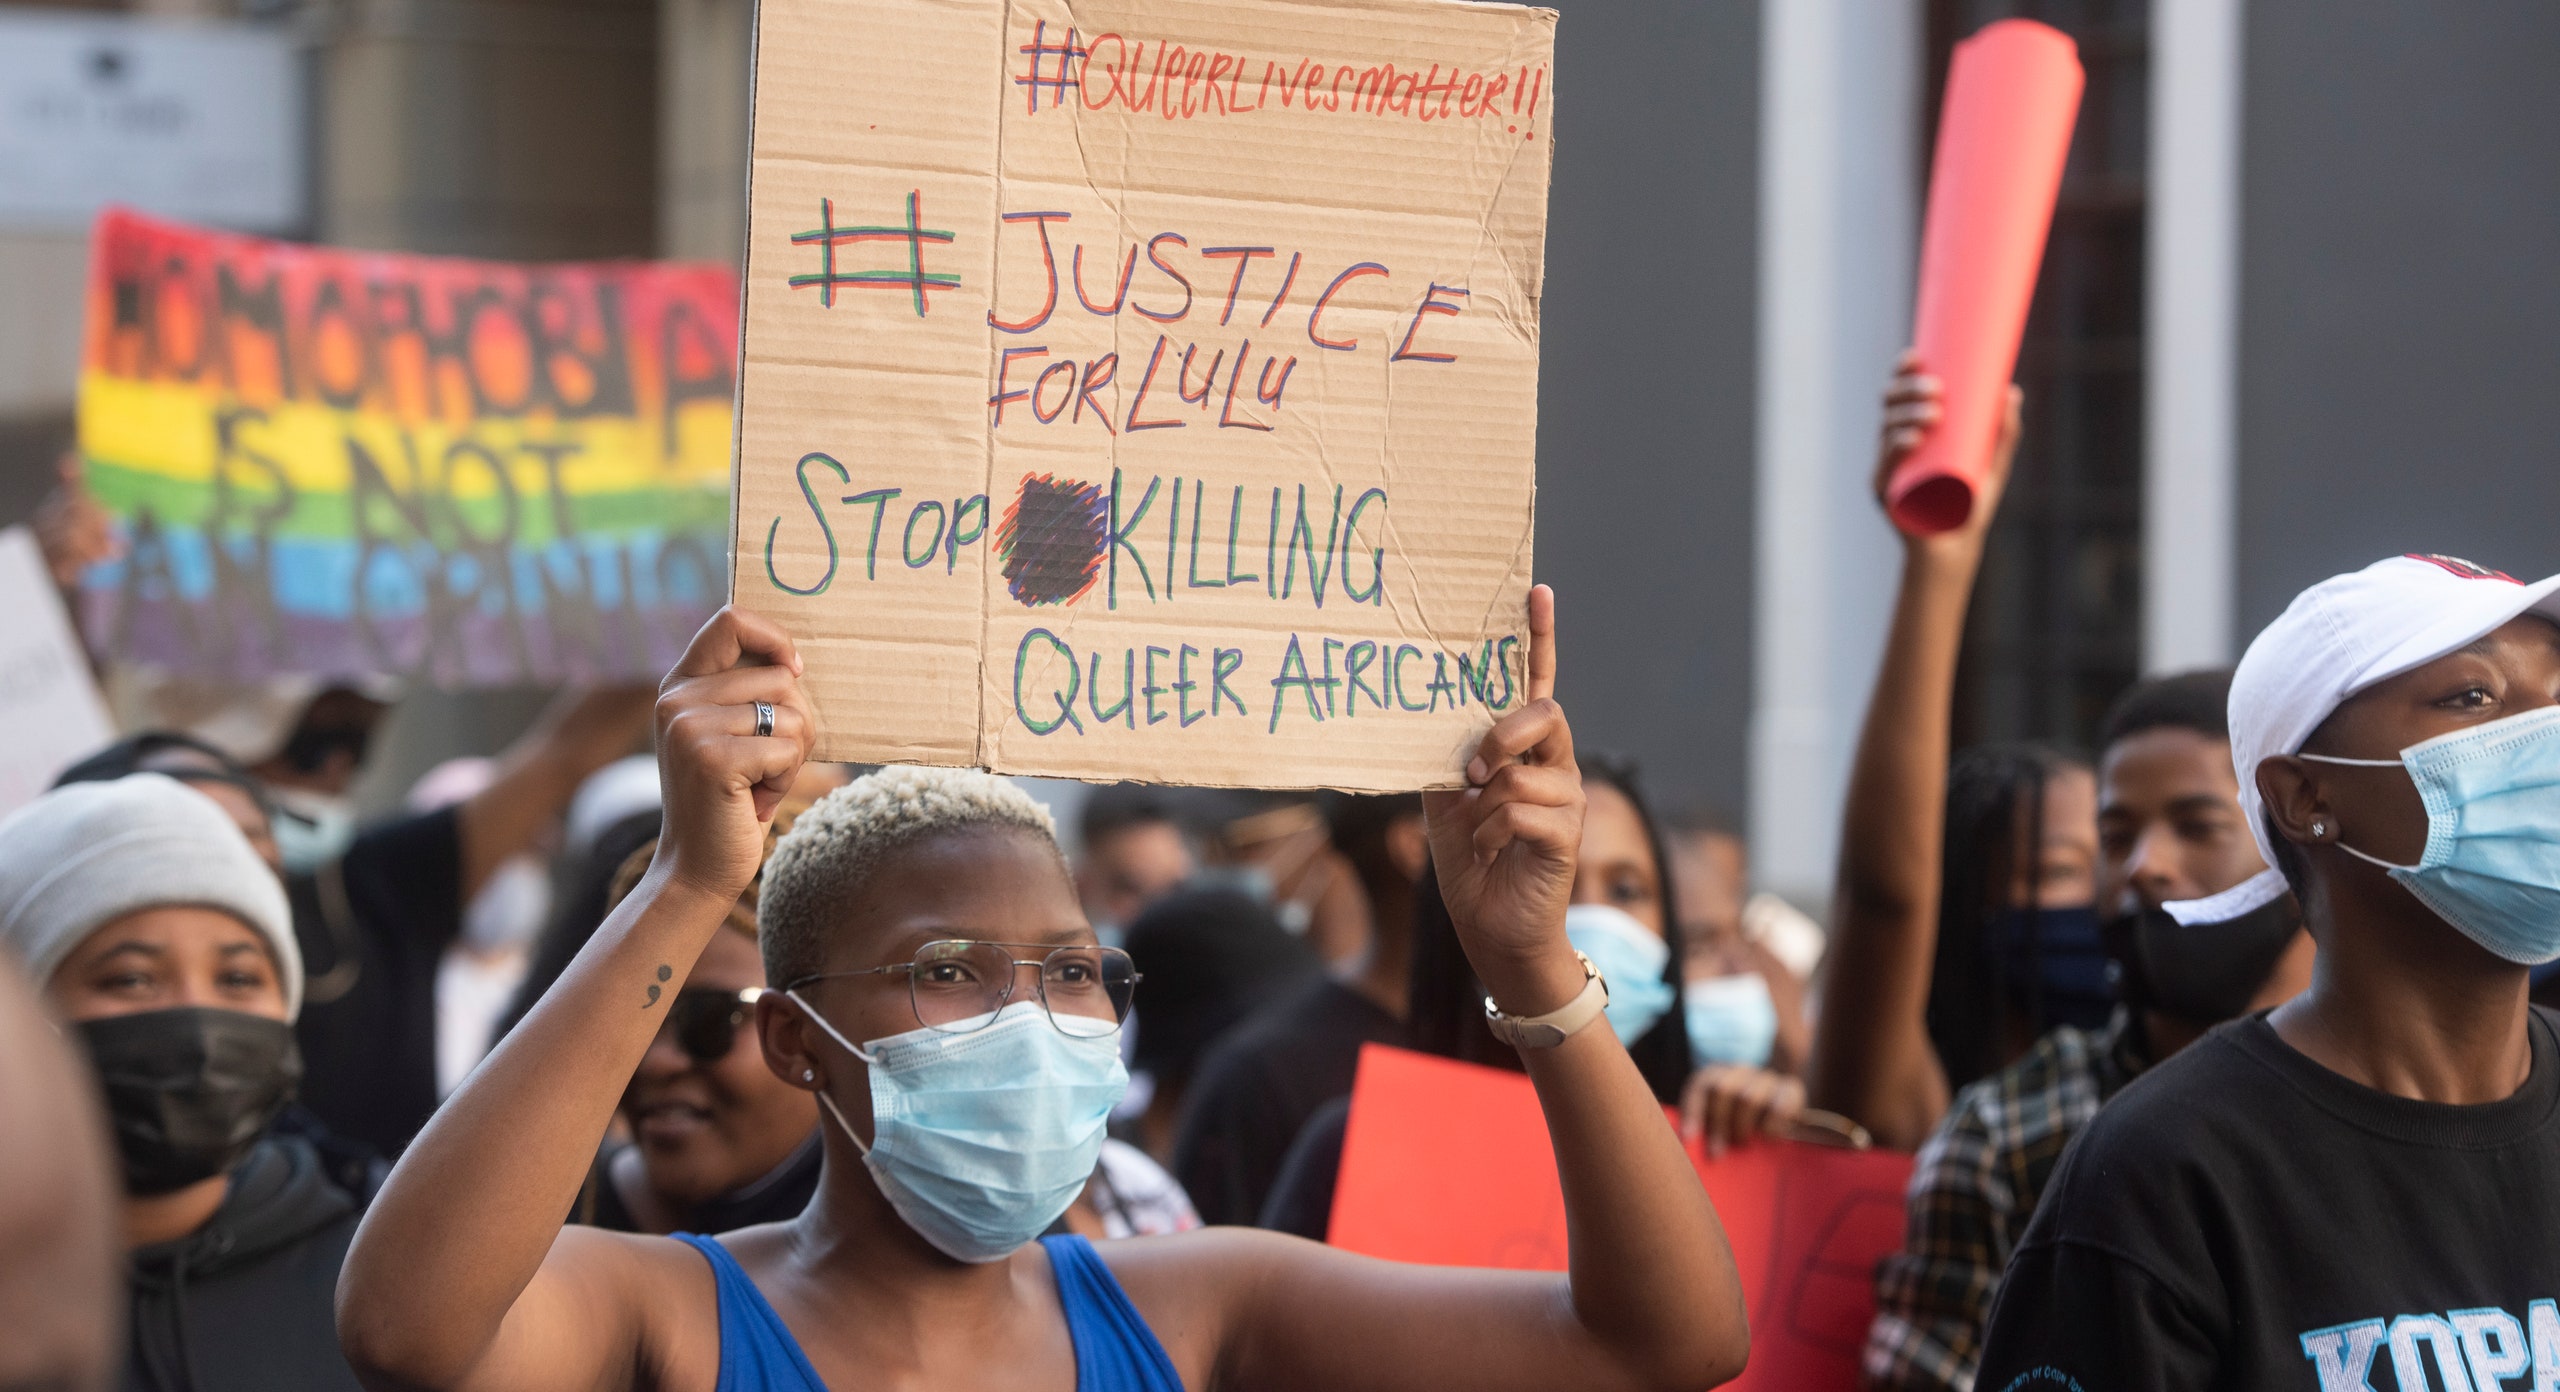 #QUEERLIVESMATTER!!
# JUSTICE
FOR LULU
STOP KILLING
QUEER AFRICANS
HOMOPHOBIA
IS NOT
AN OPINIO
KOPA